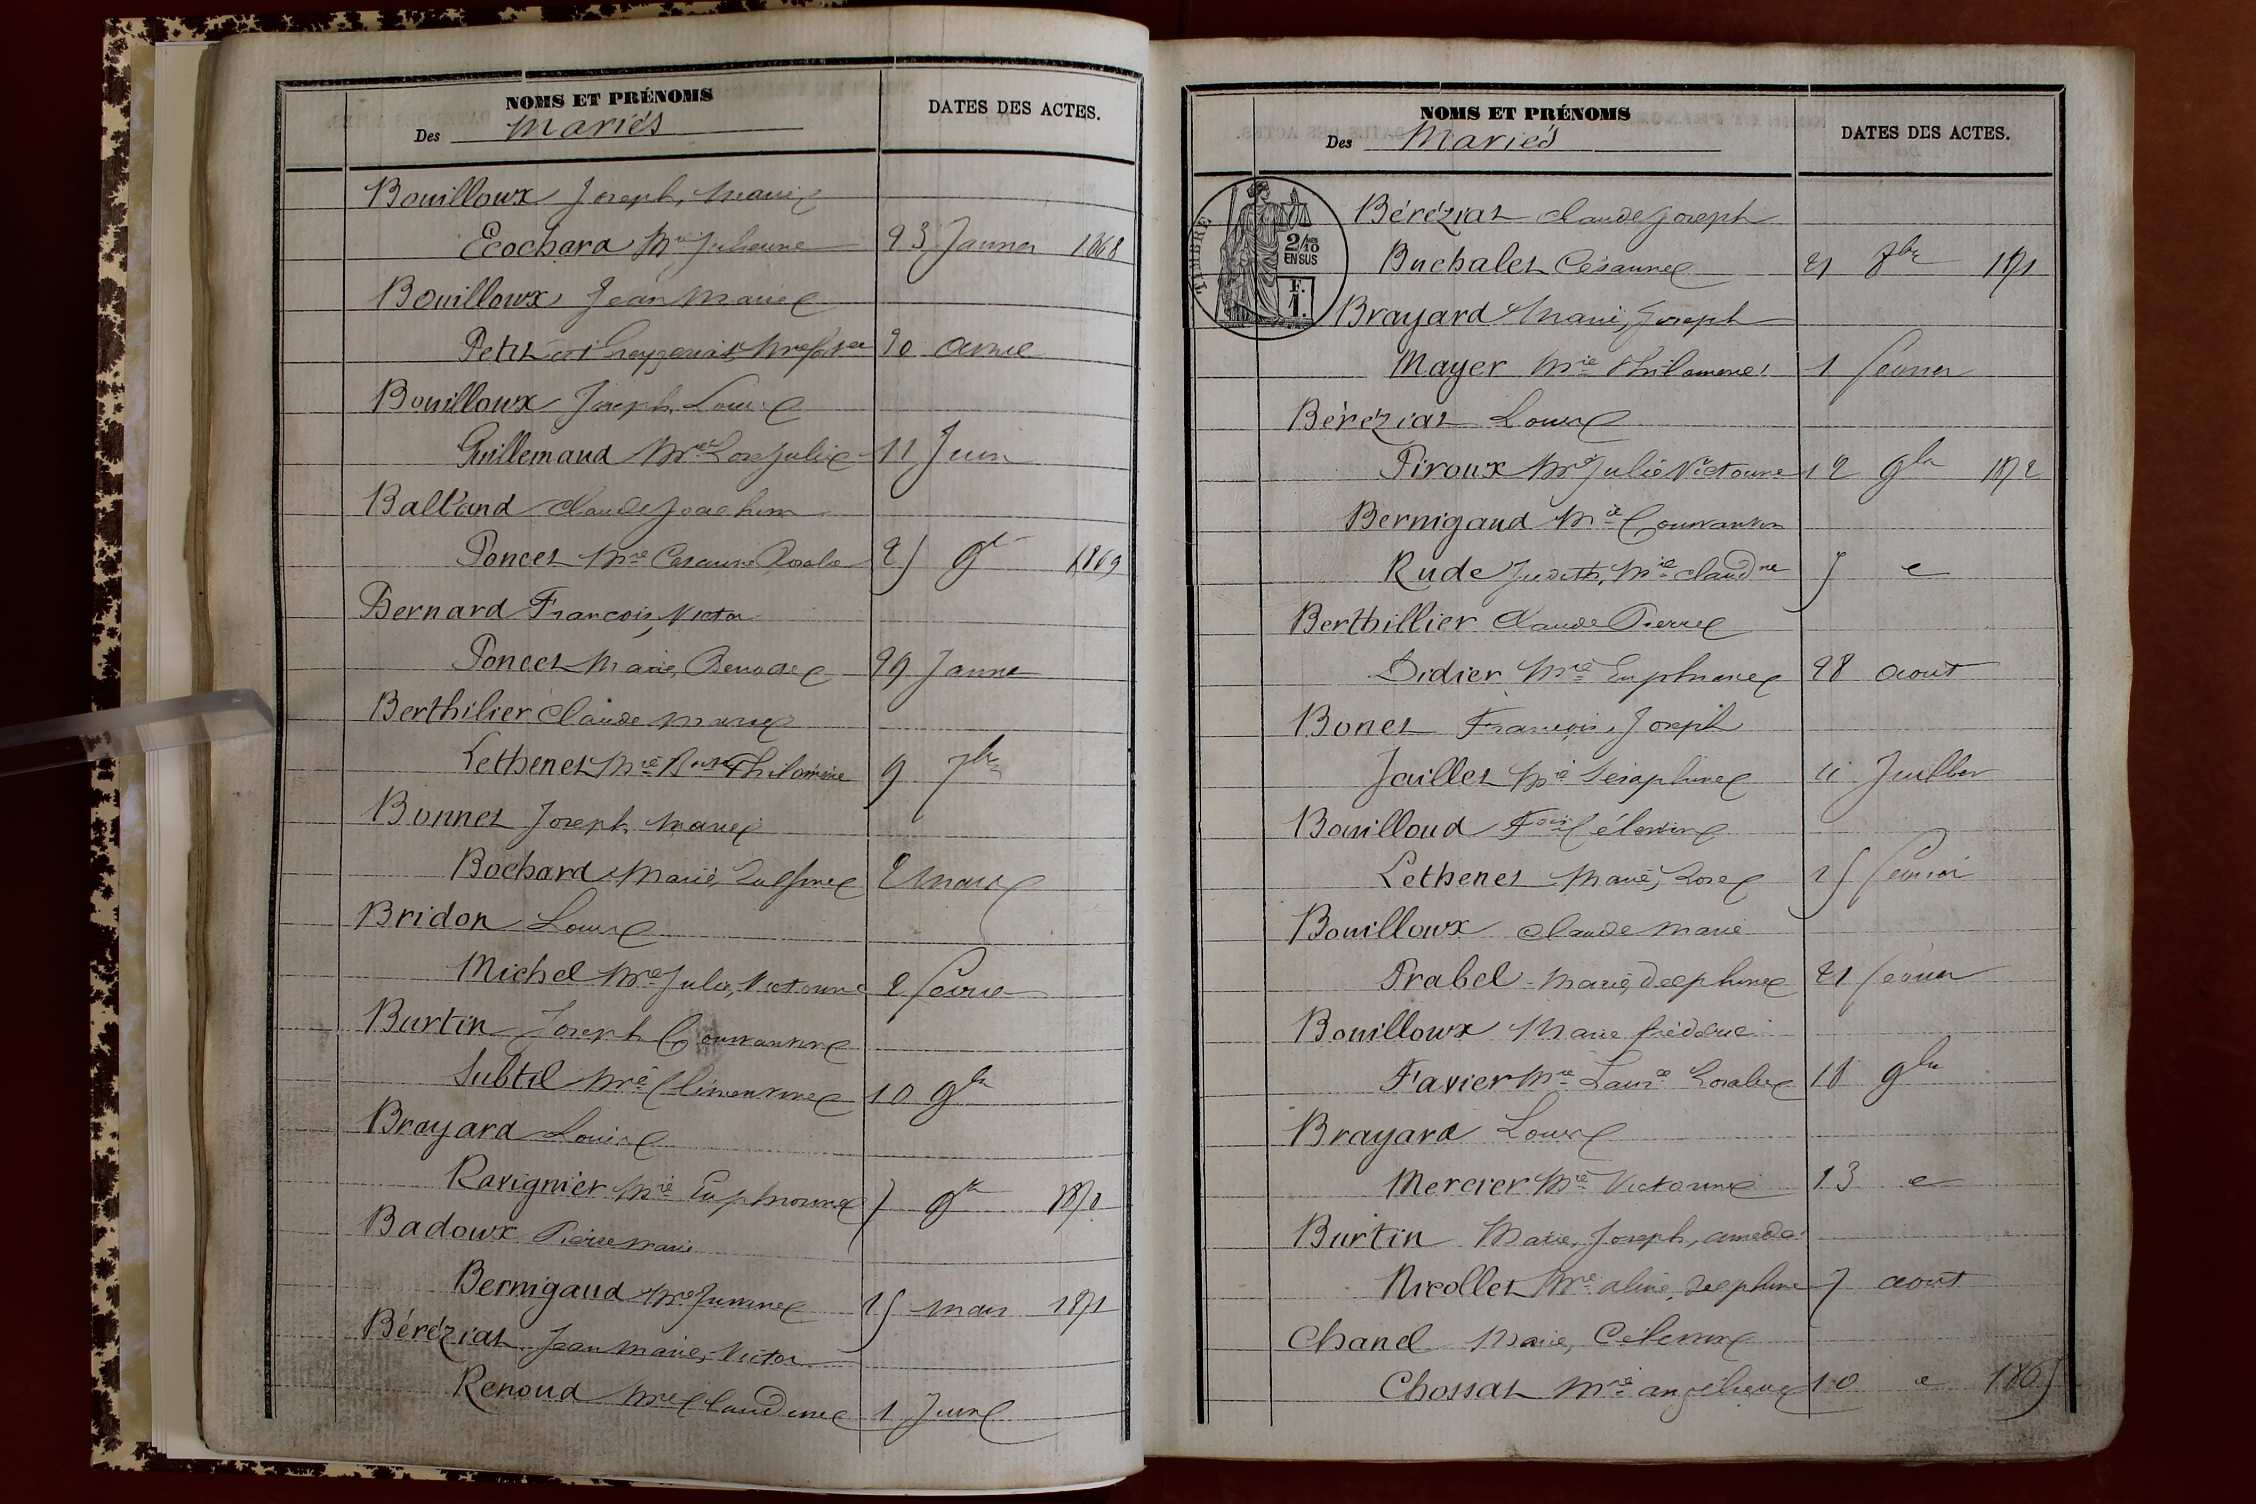 NOMS ET PRÉNOMS
Des Mariés
DATES DES ACTES.
Bouilloux Joseph, Marie
Ecochard Mie Julienne 23 Janvier 1868
Bouilloux Jean Marie
Petit 20 avril
Bouilloux Joseph Louis
Guillemaud Mie Rose Julie 11 Juin
Balland Claude Joachim
Poncet Mie Césarine Rosalie 25 9bre 1869
Bernard François, Victor
Poncet Marie, Benoite 29 Janvier
Berthilier Claude Marie
Lethenet Mie Rose Philomène 9 7bre
Bonnet Joseph, Marie
Bochard Marie, Delphine 2 Mars
Bridon Louis
Michel Mie Julie, Victorine 2 février
Burtin Joseph Constantin
Subtil Mie Clémentine 10 9bre
Brayard Louis
Ravignier Mie Euphrosine 7 9bre 1870
Badoux Pierre Marie
Bernigaud Mie Justine 15 mars 1871
Béréziat Jean Marie, Victor
Renoud Mie Claudine 1 Juin
NOMS ET PRÉNOMS
Des Mariés
DATES DES ACTES.
TIMBRE
2/10 EN SUS
F. 1.
Béréziat Claude Joseph
Buchalet Césarine 21 7bre 1871
Brayard Marie, Joseph
Mayer Mie Philomène 1 février
Béréziat Louis
Piroux Mie Julie Victorine 12 9bre 1872
Bernigaud Mie Constantin
Rude Judith, Mie Claudne 5 e
Berthillier Claude Pierre
Didier Mie Euphrasie 28 aout
Bonet François, Joseph
Jaillet Mie Séraphine 11 Juillet
Bouilloud Fois Célestin
Lethenet Marie, Rose 25 février
Bouilloux Claude Marie
Prabel Marie, Delphine 21 février
Bouilloux Marie frédéric
Favier Mie Laure Rosalie 18 9bre
Brayard Louis
Mercier Mie Victorine 13 e
Burtin Marie, Joseph, amédée
Nicollet Mie aline, Delphine 7 aout
Chanel Marie, Célestin
Chossat Mie angélique 10 e 1865